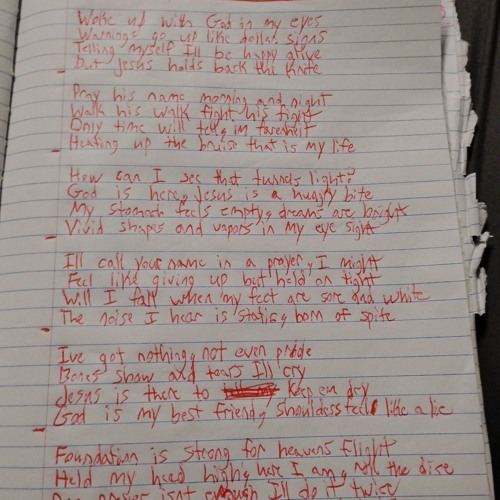 Woke up with God in my eyes
Warnings go up like dollar signs
Telling myself Ill be happy alive
but Jesus holds back the knife
Pray his name morning and night
Walk his walk fight his fight
Only time will tell, im farenheit
Heating up the bruise that is my life
How can I see that tunnels light?
God is here, Jesus is a hungry bite
My stomach feels empty, dreams are bright
Vivid shapes and vapors in my eye sight
Ill call your name in a prayer, I might
Feel like giving up but hold on tight
Will I fall when my feet are sore and white
The noise I hear is static, born of spite
Ive got nothing, not even pride
Bones show and tears Ill cry
Jesus is there to keep em dry
God is my best friend, shoulders feel like a lie
Foundation is strong for heavens flight
Held my head high, here I am, roll the dice
One prayer isnt enough Ill do it twice